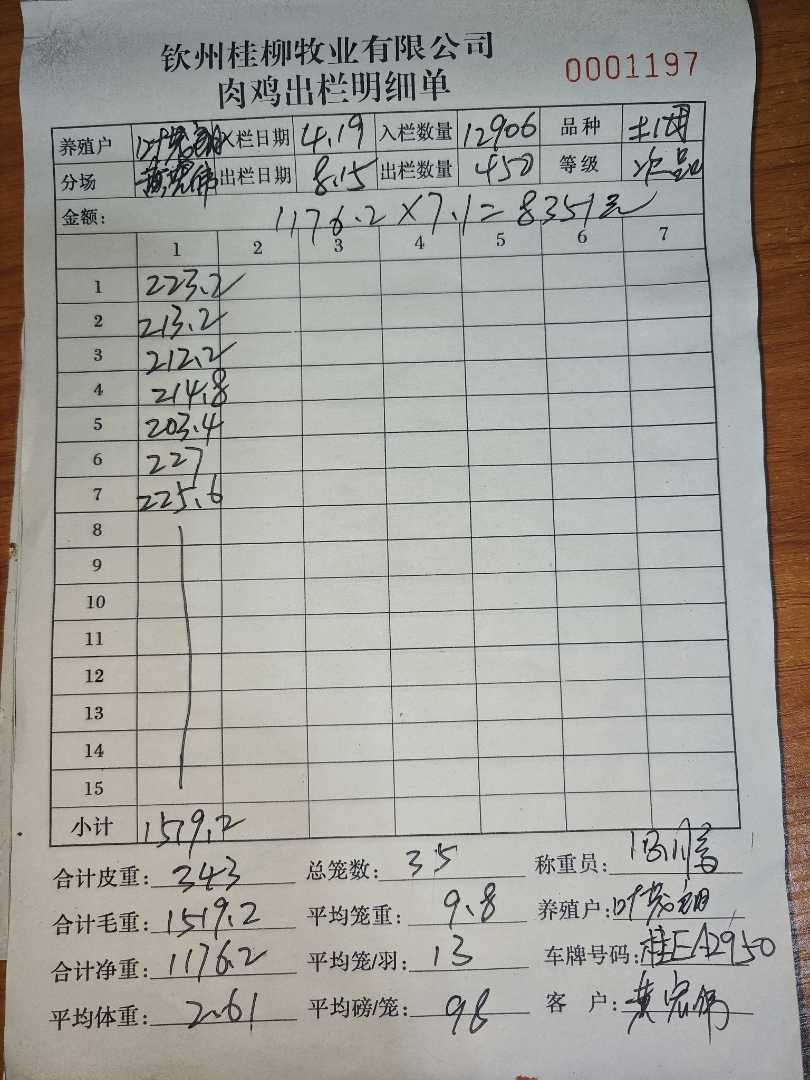 钦州桂柳牧业有限公司
肉鸡出栏明细单
0001197
养殖户 入栏日期 4.19 入栏数量 12906 品种
分场 黄宏伟 出栏日期 8.15 出栏数量 450 等级 次品
金额: 1176.2×7.1=8351元
1 2 3 4 5 6 7
1 223.2
2 213.2
3 212.2
4 214.8
5 203.4
6 227
7 225.6
8
9
10
11
12
13
14
15
小计 1519.2
合计皮重: 343 总笼数: 35 称重员:
合计毛重: 1519.2 平均笼重: 9.8 养殖户:
合计净重: 1176.2 平均笼/羽: 13 车牌号码: 桂EA2950
平均体重: 2.61 平均磅/笼: 98 客 户: 黄宏伟